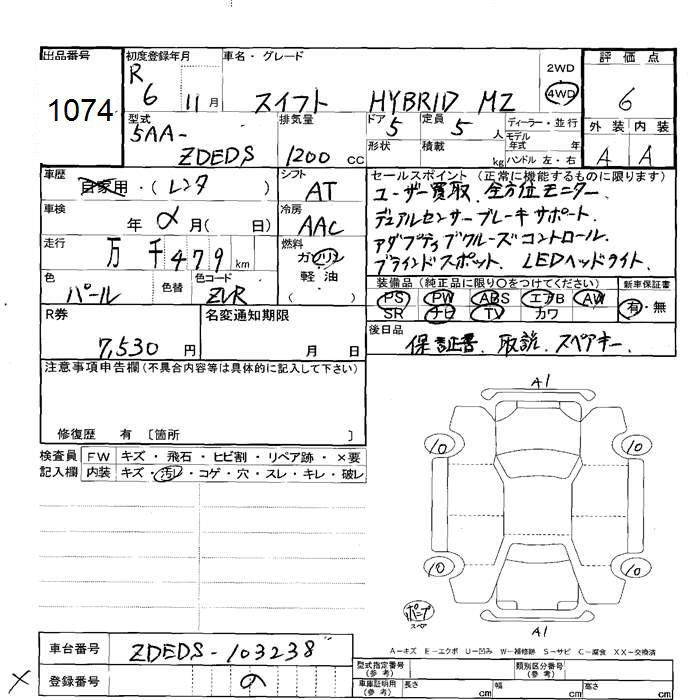 出品番号
1074
初度登録年月
R
6 11月
車名・グレード
スイフト HYBRID MZ
2WD
4WD
評価点
6
型式
5AA-
ZDEDS
排気量
1200 CC
ドア
5
定員
5 人
ディーラー・並行
モデル
年式 年
形状
積載 kg
ハンドル 左・右
外装 内装
A A
車歴
自家用・(レンタ )
シフト
AT
セールスポイント (正常に機能するものに限ります)
ユーザー買取. 全方位モニター.
デュアルセンサーブレーキサポート.
アダプティブクルーズコントロール.
ブラインドスポット. LEDヘッドライト.
車検
年 月( 日)
冷房
AAC
走行
万 千479km
燃料
ガソリン
軽油
( )
色
パール
色替
色コード
ZVR
装備品(純正品に限り○をつけてください)
PS PW ABS エアB AW
SR ナビ TV カワ
新車保証書
有・無
R券
7,530 円
名変通知期限
月 日
後日品
保証書. 取説. スペアキー.
注意事項申告欄(不具合内容等は具体的に記入して下さい)
修復歴 有 〔箇所 〕
検査員
記入欄
FW キズ・飛石・ヒビ割・リペア跡・×要
内装 キズ・汚レ・コゲ・穴・スレ・キレ・破レ
A1
10 10
10 10
A1
A-キズ E-エクボ U-凹み W-補修跡 S-サビ C-腐食 XX-交換済
車台番号
ZDEDS-103238
登録番号
の
×
型式指定番号
(参考)
類別区分番号
(参考)
車庫証明用
(参考)
長さ cm
幅 cm
高さ cm